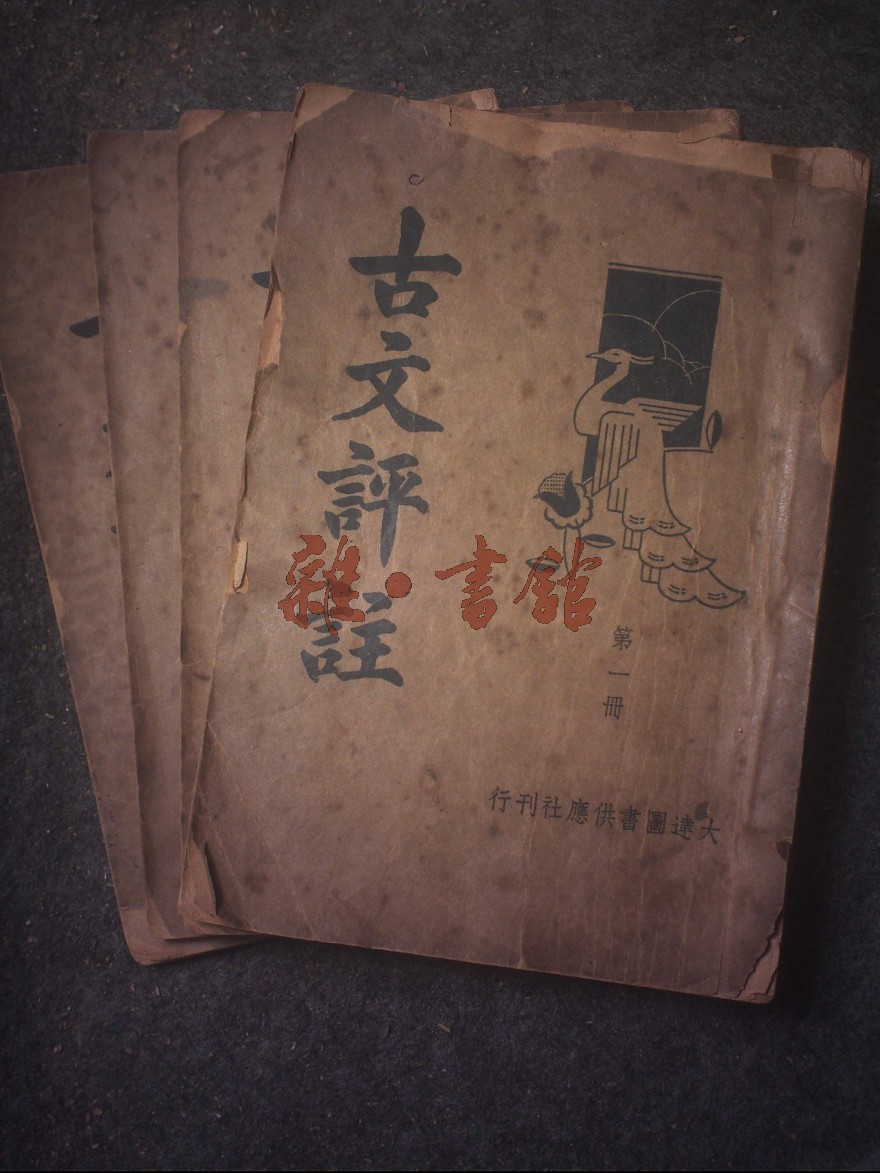 古文評註
第一冊
大達圖書供應社刊行
雜·書館